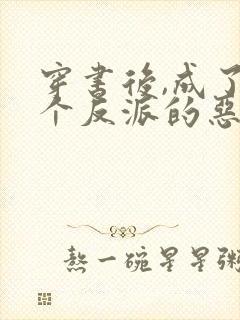 穿書後,成了
个反派的惡
熬一碗星星粥